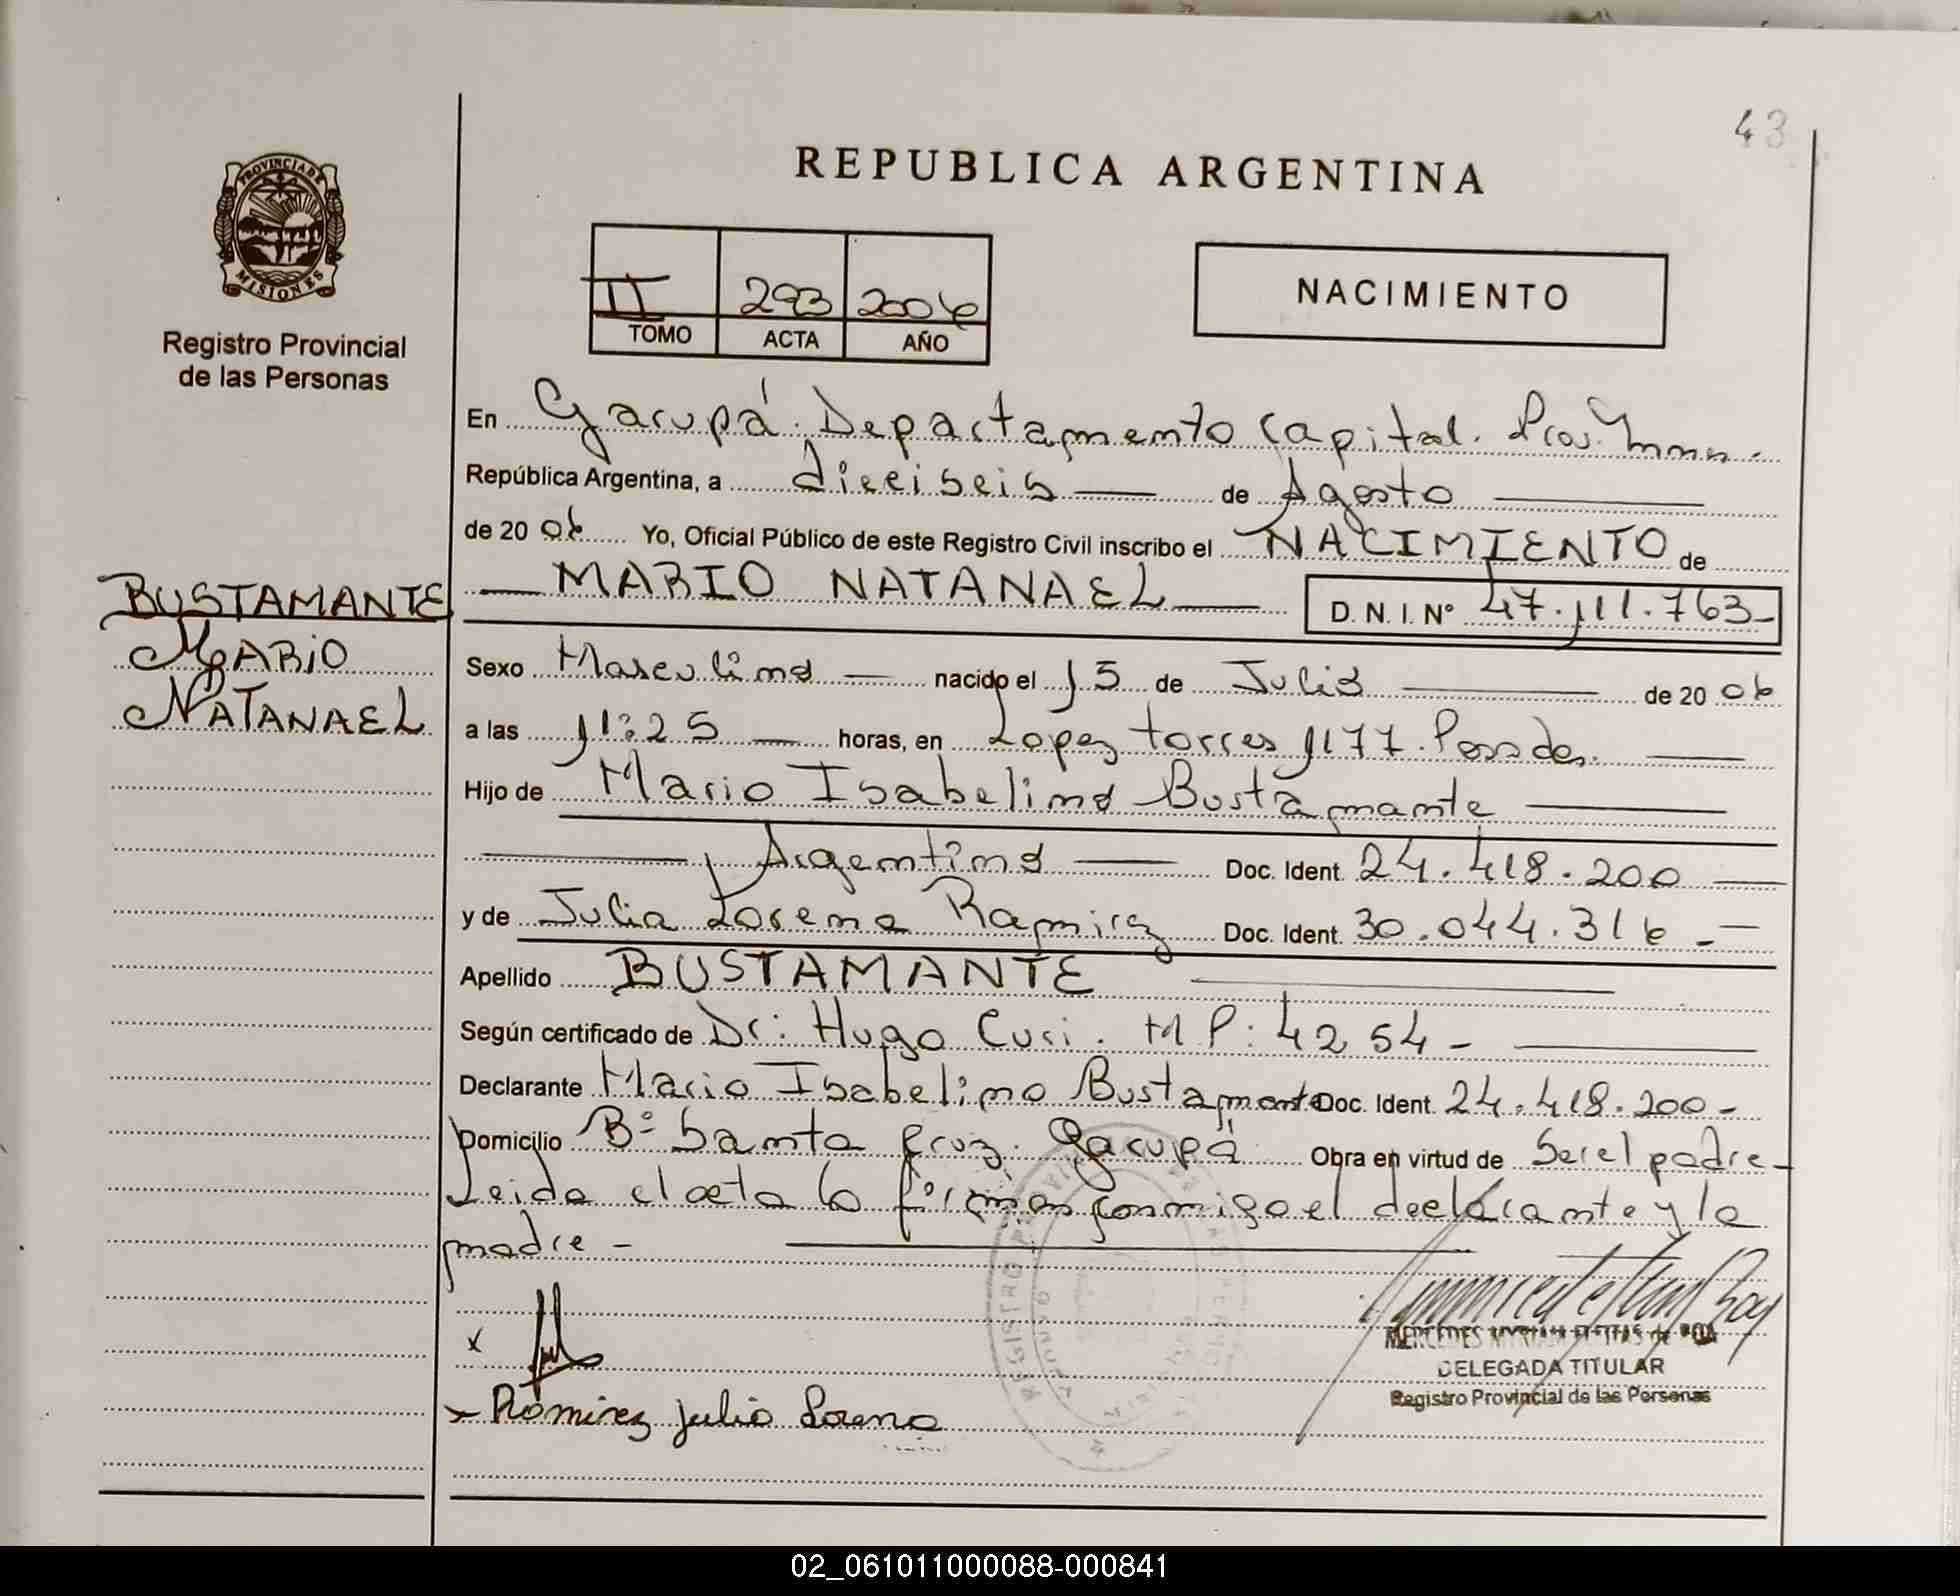 43
REPUBLICA ARGENTINA
PROVINCIA DE
MISIONES
Registro Provincial
de las Personas
II 293 2006
TOMO ACTA AÑO
NACIMIENTO
En Garupá. Departamento Capital. Prov.
República Argentina, a dieciseis de Agosto
de 20 06 Yo, Oficial Público de este Registro Civil inscribo el NACIMIENTO de
BUSTAMANTE
MARIO
NATANAEL
MARIO NATANAEL D. N. I. Nº 47.111.763-
Sexo Masculino nacido el 15 de Julio de 20 06
a las 11:25 horas, en Lopez torres 1177. Posadas.
Hijo de Mario Isabelino Bustamante
Argentino Doc. Ident. 24.418.200
y de Julia Lorena Ramirez Doc. Ident. 30.044.316-
Apellido BUSTAMANTE
Según certificado de Dr: Hugo Curi. MP: 4254-
Declarante Mario Isabelino Bustamante Doc. Ident. 24.418.200-
Domicilio Bº Santa Cruz. Garupá Obra en virtud de Ser el padre-
Leida el acta la firman conmigo el declarante y la
madre-
x
x Ramirez Julia Lorena
MERCEDES
DELEGADA TITULAR
Registro Provincial de las Personas
REGISTRO
02_061011000088-000841